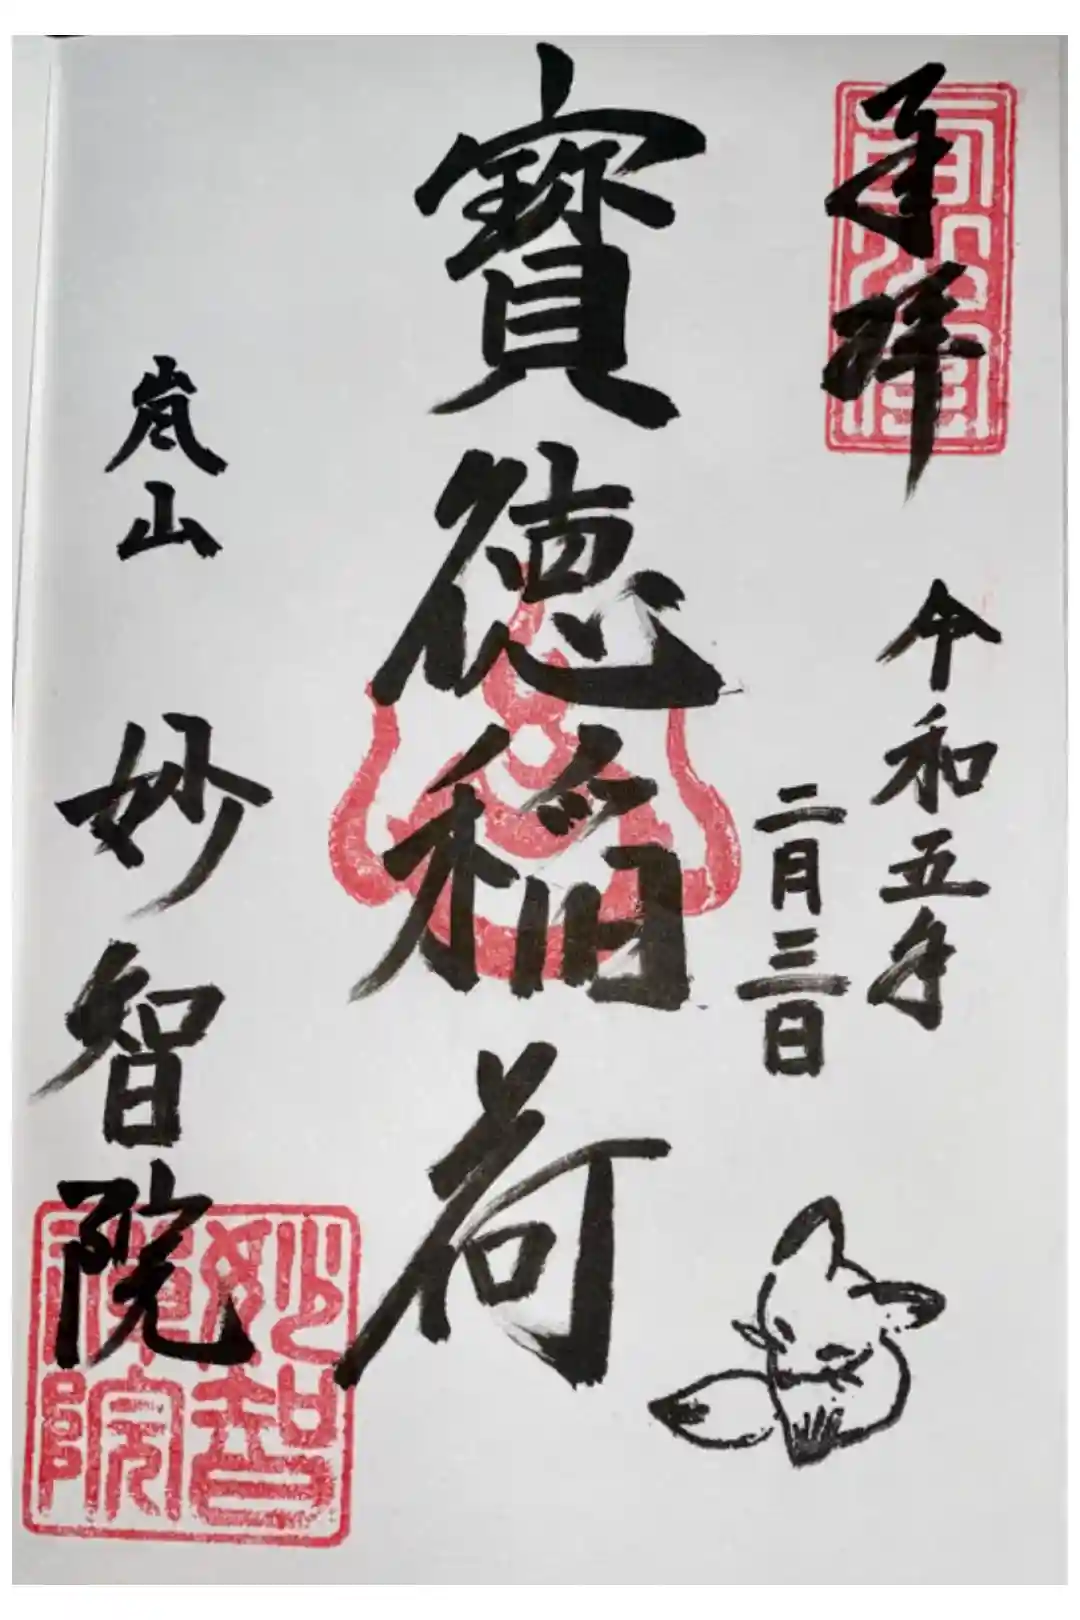 奉拝
令和五年
二月三日
寶徳稲荷
嵐山
妙智院
妙智
禅院